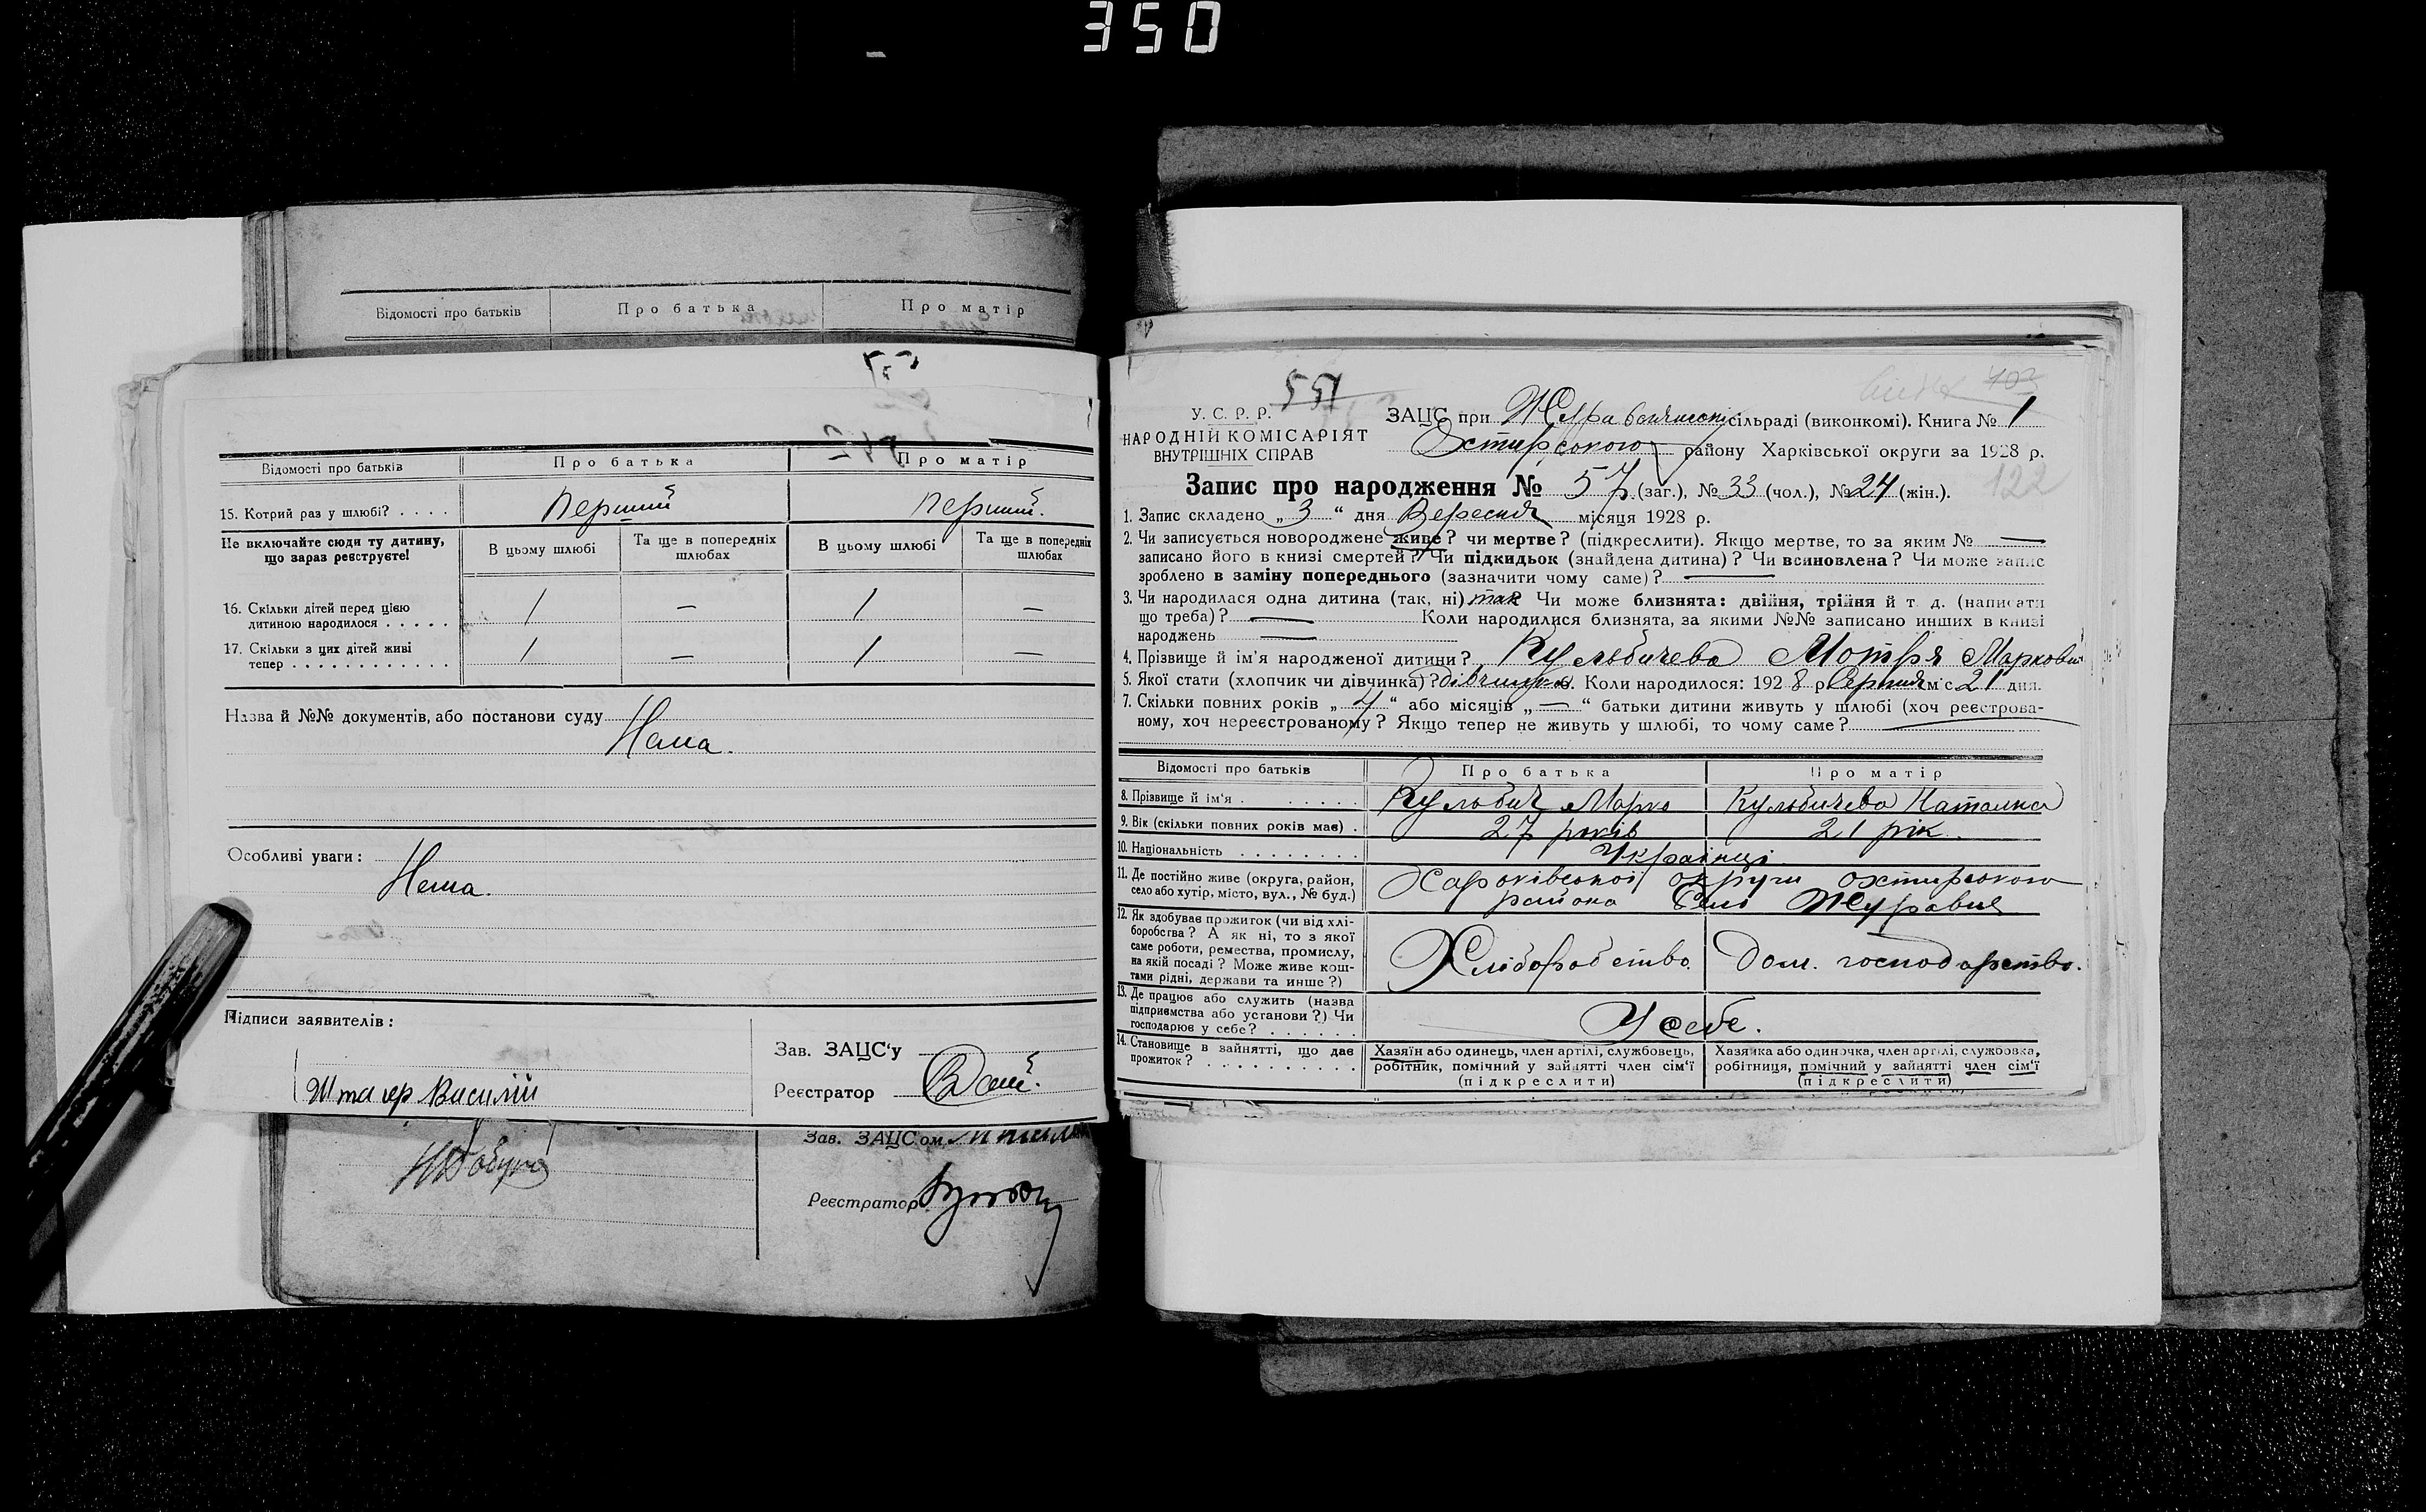 350
Відомості про батьків Про батька Про матір
Відомості про батьків Про батька Про матір
15. Котрий раз у шлюбі? . . . . Перший Перший.
Не включайте сюди ту дитину, що зараз реєструєте!
В цьому шлюбі Та ще в попередніх шлюбах В цьому шлюбі Та ще в попередніх шлюбах
16. Скільки дітей перед цією
дитиною народилося . . . . . 1 — 1 —
17. Скільки з цих дітей живі
тепер . . . . . . . . . . . . 1 — 1 —
Назва й №№ документів, або постанови суду
Нема.
Особливі уваги:
Нема.
Підписи заявителів:
Зав. ЗАЦС'у
Реєстратор
Василій
Зав. ЗАЦСом
Реєстратор
551
У. С. Р. Р.
НАРОДНІЙ КОМІСАРІЯТ
ВНУТРІШНІХ СПРАВ
403
ЗАЦС при сільраді (виконкомі). Книга № 1
Охтирського району Харківської округи за 1928 р.
122
Запис про народження № 57 (заг.), № 33 (чол.), № 24 (жін.).
1. Запис складено „ 3 “ дня Вересня місяця 1928 р.
2. Чи записується новороджене живе? чи мертве? (підкреслити). Якщо мертве, то за яким № —
записано його в книзі смертей? Чи підкидьок (знайдена дитина)? Чи всиновлена? Чи може запис
зроблено в заміну попереднього (зазначити чому саме)? —
3. Чи народилася одна дитина (так, ні) так Чи може близнята: двійня, трійня й т. д. (написати
що треба)? — Коли народилися близнята, за якими №№ записано инших в книзі
народжень —
4. Прізвище й ім'я народженої дитини? Кульбичева Мотря Маркови
5. Якої стати (хлопчик чи дівчинка)? дівчинка. Коли народилось: 192 8 р. Серпня м'с. 21 дня.
7. Скільки повних років „ 4 “ або місяців „ — “ батьки дитини живуть у шлюбі (хоч реєстрова-
ному, хоч нереєстрованому? Якщо тепер не живуть у шлюбі, то чому саме? —
Відомості про батьків Про батька Про матір
8. Прізвище й ім'я . . . . . . Кульбич Марко Кульбичева Наталка
9. Вік (скільки повних років має) . 27 років 21 рік.
10. Національність . . . . . . . . Українці
11. Де постійно живе (округа, район,
село або хутір, місто, вул., № буд.)
Харьківської округи охтирського
района Село Журавне
12. Як здобуває прожиток (чи від хлі-
боробства? А як ні, то з якої
саме роботи, ремества, промислу,
на якій посаді? Може живе кош-
тами рідні, держави та инше?)
Хліборобство. Дом. господарство.
13. Де працює або служить (назва
підприємства або установи?) Чи
господарює у себе? . . . . . . .
У себе.
14. Становище в зайнятті, що дає
прожиток? . . . . . . . . . . .
Хазяїн або одинець, член артілі, службовець,
робітник, помічний у зайнятті член сім'ї
(підкреслити)
Хазяйка або одиночка, член артілі, службовка,
робітниця, помічний у зайнятті член сім'ї
(підкреслити)